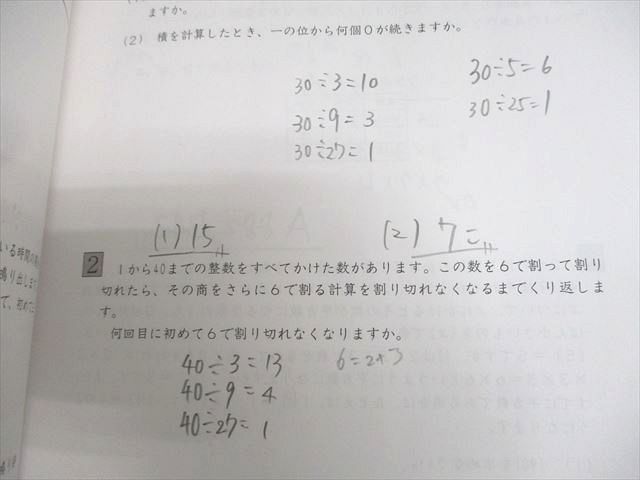 ますか。
(2) 積を計算したとき、一の位から何個0が続きますか。
30÷3=10
30÷5=6
30÷9=3
30÷25=1
30÷27=1
(1) 15
(2) 7こ
2 1から40までの整数をすべてかけた数があります。この数を6で割って割り
切れたら、その商をさらに6で割る計算を割り切れなくなるまでくり返しま
す。
何回目に初めて6で割り切れなくなりますか。
40÷3=13
6=2×3
40÷9=4
40÷27=1
いる時間の
鳴り出しま
て、初めて